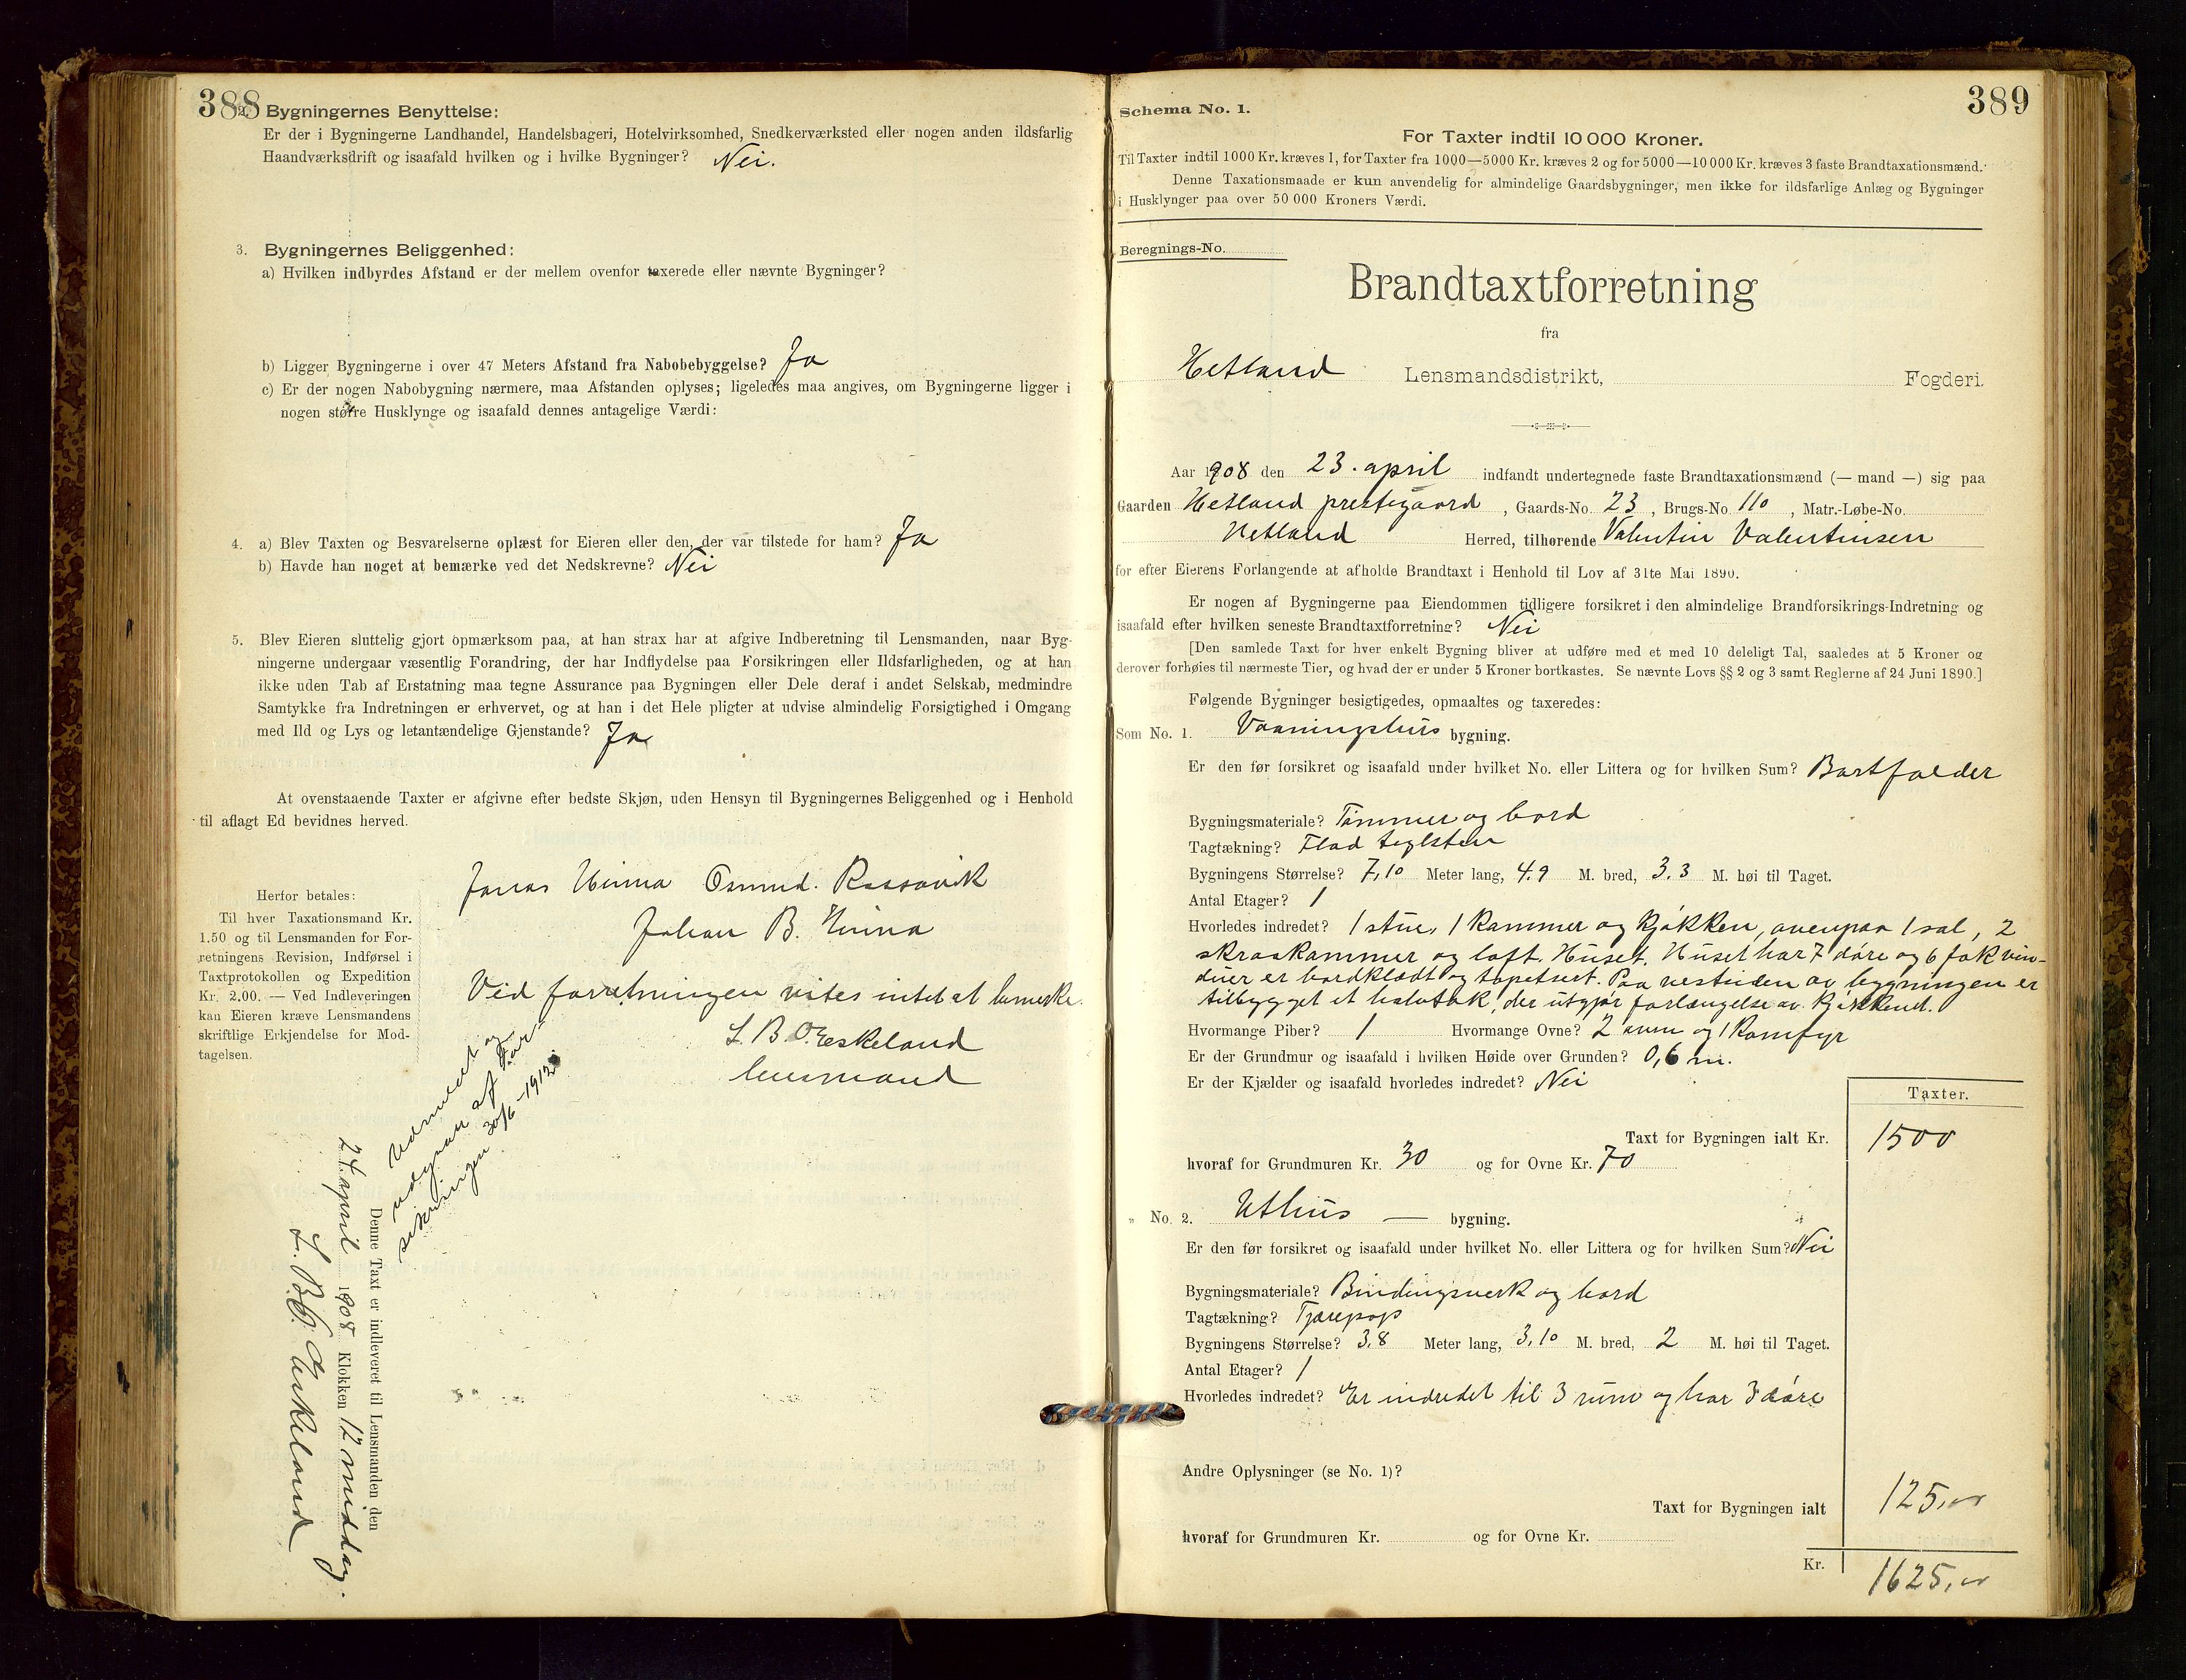 388
2. Bygningernes Benyttelse:
Er der i Bygningerne Landhandel, Handelsbageri, Hotelvirksomhed, Snedkerværksted eller nogen anden ildsfarlig
Haandværksdrift og isaafald hvilken og i hvilke Bygninger? Nei.
3. Bygningernes Beliggenhed:
a) Hvilken indbyrdes Afstand er der mellem ovenfor taxerede eller nævnte Bygninger?
b) Ligger Bygningerne i over 47 Meters Afstand fra Nabobebyggelse? Ja
c) Er der nogen Nabobygning nærmere, maa Afstanden oplyses; ligeledes maa angives, om Bygningerne ligger i
nogen større Husklynge og isaafald dennes antagelige Værdi:
4. a) Blev Taxten og Besvarelserne oplæst for Eieren eller den, der var tilstede for ham? Ja
b) Havde han noget at bemærke ved det Nedskrevne? Nei
5. Blev Eieren sluttelig gjort opmærksom paa, at han strax har at afgive Indberetning til Lensmanden, naar Byg-
ningerne undergaar væsentlig Forandring, der har Indflydelse paa Forsikringen eller Ildsfarligheden, og at han
ikke uden Tab af Erstatning maa tegne Assurance paa Bygningen eller Dele deraf i andet Selskab, medmindre
Samtykke fra Indretningen er erhvervet, og at han i det Hele pligter at udvise almindelig Forsigtighed i Omgang
med Ild og Lys og letantændelige Gjenstande? Ja
At ovenstaaende Taxter er afgivne efter bedste Skjøn, uden Hensyn til Bygningernes Beliggenhed og i Henhold
til aflagt Ed bevidnes herved.
Jonas Hinna Osmund. Rossavik
Johan B. Hinna
Herfor betales:
Til hver Taxationsmand Kr.
1.50 og til Lensmanden for For-
retningens Revision, Indførsel i
Taxtprotokollen og Expedition
Kr. 2.00. — Ved Indleveringen
kan Eieren kræve Lensmandens
skriftlige Erkjendelse for Mod-
tagelsen.
Ved forretningen vites intet at bemerke.
L. B. O. Eskeland
lensmand
Udmeldt og
udgaaet af For-
sikringen 30/6-1912
Denne Taxt er indleveret til Lensmanden den
24 april 1908 Klokken 12 middag.
L. B. O. Eskeland
389
Schema No. 1.
For Taxter indtil 10 000 Kroner.
Til Taxter indtil 1000 Kr. kræves 1, for Taxter fra 1000—5000 Kr. kræves 2 og for 5000—10 000 Kr. kræves 3 faste Brandtaxationsmænd.
Denne Taxationsmaade er kun anvendelig for almindelige Gaardsbygninger, men ikke for ildsfarlige Anlæg og Bygninger
i Husklynger paa over 50 000 Kroners Værdi.
Beregnings-No.
Brandtaxtforretning
fra
Hetland Lensmandsdistrikt, Fogderi.
Aar 1908 den 23. april indfandt undertegnede faste Brandtaxationsmænd (— mand —) sig paa
Gaarden Hetland prestegaard, Gaards-No. 23, Brugs-No 110, Matr.-Løbe-No.
Hetland Herred, tilhørende Valentin Valentinsen
for efter Eierens Forlangende at afholde Brandtaxt i Henhold til Lov af 31te Mai 1890.
Er nogen af Bygningerne paa Eiendommen tidligere forsikret i den almindelige Brandforsikrings-Indretning og
isaafald efter hvilken seneste Brandtaxtforretning? Nei
[Den samlede Taxt for hver enkelt Bygning bliver at udføre med et med 10 deleligt Tal, saaledes at 5 Kroner og
derover forhøies til nærmeste Tier, og hvad der er under 5 Kroner bortkastes. Se nævnte Lovs §§ 2 og 3 samt Reglerne af 24 Juni 1890.]
Følgende Bygninger besigtigedes, opmaaltes og taxeredes:
Som No. 1. Vaaningshus bygning.
Er den før forsikret og isaafald under hvilket No. eller Littera og for hvilken Sum? Bortfalder
Bygningsmateriale? Tømmer og bord
Tagtækning? Flad teglsten
Bygningens Størrelse? 7,10 Meter lang, 4.9 M. bred, 3.3 M. høi til Taget.
Antal Etager? 1
Hvorledes indredet? 1 stue, 1 kammer og kjøkken, ovenpaa 1 sal, 2
skraakammer og loft. Huset. Huset har 7 døre og 6 fak vin-
duer er bordklædt og tapetsert. Paa vestsiden av bygningen er
tilbygget et halvtak, der utgjør forlængelse av kjøkkenet.
Hvormange Piber? 1 Hvormange Ovne? 2 ovne og 1 Komfyr
Er der Grundmur og isaafald i hvilken Høide over Grunden? 0,6 m.
Er der Kjælder og isaafald hvorledes indredet? Nei
Taxter.
Taxt for Bygningen ialt Kr. 1500
hvoraf for Grundmuren Kr. 30 og for Ovne Kr. 70
„ No. 2. Uthus — bygning.
Er den før forsikret og isaafald under hvilket No. eller Littera og for hvilken Sum? Nei
Bygningsmateriale? Bindingsverk og bord
Tagtækning? Tjærepap
Bygningens Størrelse? 3,8 Meter lang, 3,10 M. bred, 2 M. høi til Taget.
Antal Etager? 1
Hvorledes indredet? Er indredet til 3 rum og har 3 døre
Andre Oplysninger (se No. 1)?
Taxt for Bygningen ialt 125,00
hvoraf for Grundmuren Kr. og for Ovne Kr.
Kr. 1625,00